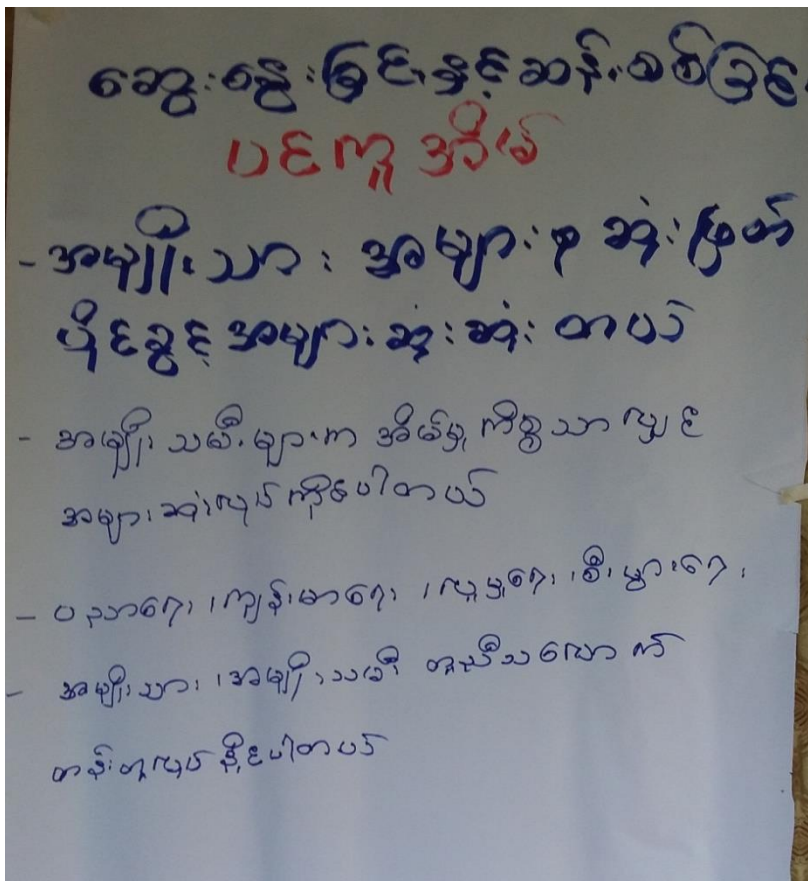 ဆွေးနွေးခြင်းနှင့်ဆန်းစစ်ခြင်း
ပင်ကူအိမ်
- အမျိုးသား အများစု ဆုံးဖြတ်
ပိုင်ခွင့် အများဆုံးဆုံး တယ်
- အမျိုးသမီးများက အိမ်မှုကိစ္စသာလျှင်
အများဆုံးလုပ်ကိုင်ပါတယ်
- ပညာရေး၊ ကျန်းမာရေး၊ လူမှုရေး၊ စီးပွားရေး၊
- အမျိုးသား၊ အမျိုးသမီး တူညီသလောက်
တန်းတူလုပ်နိုင်ပါတယ်